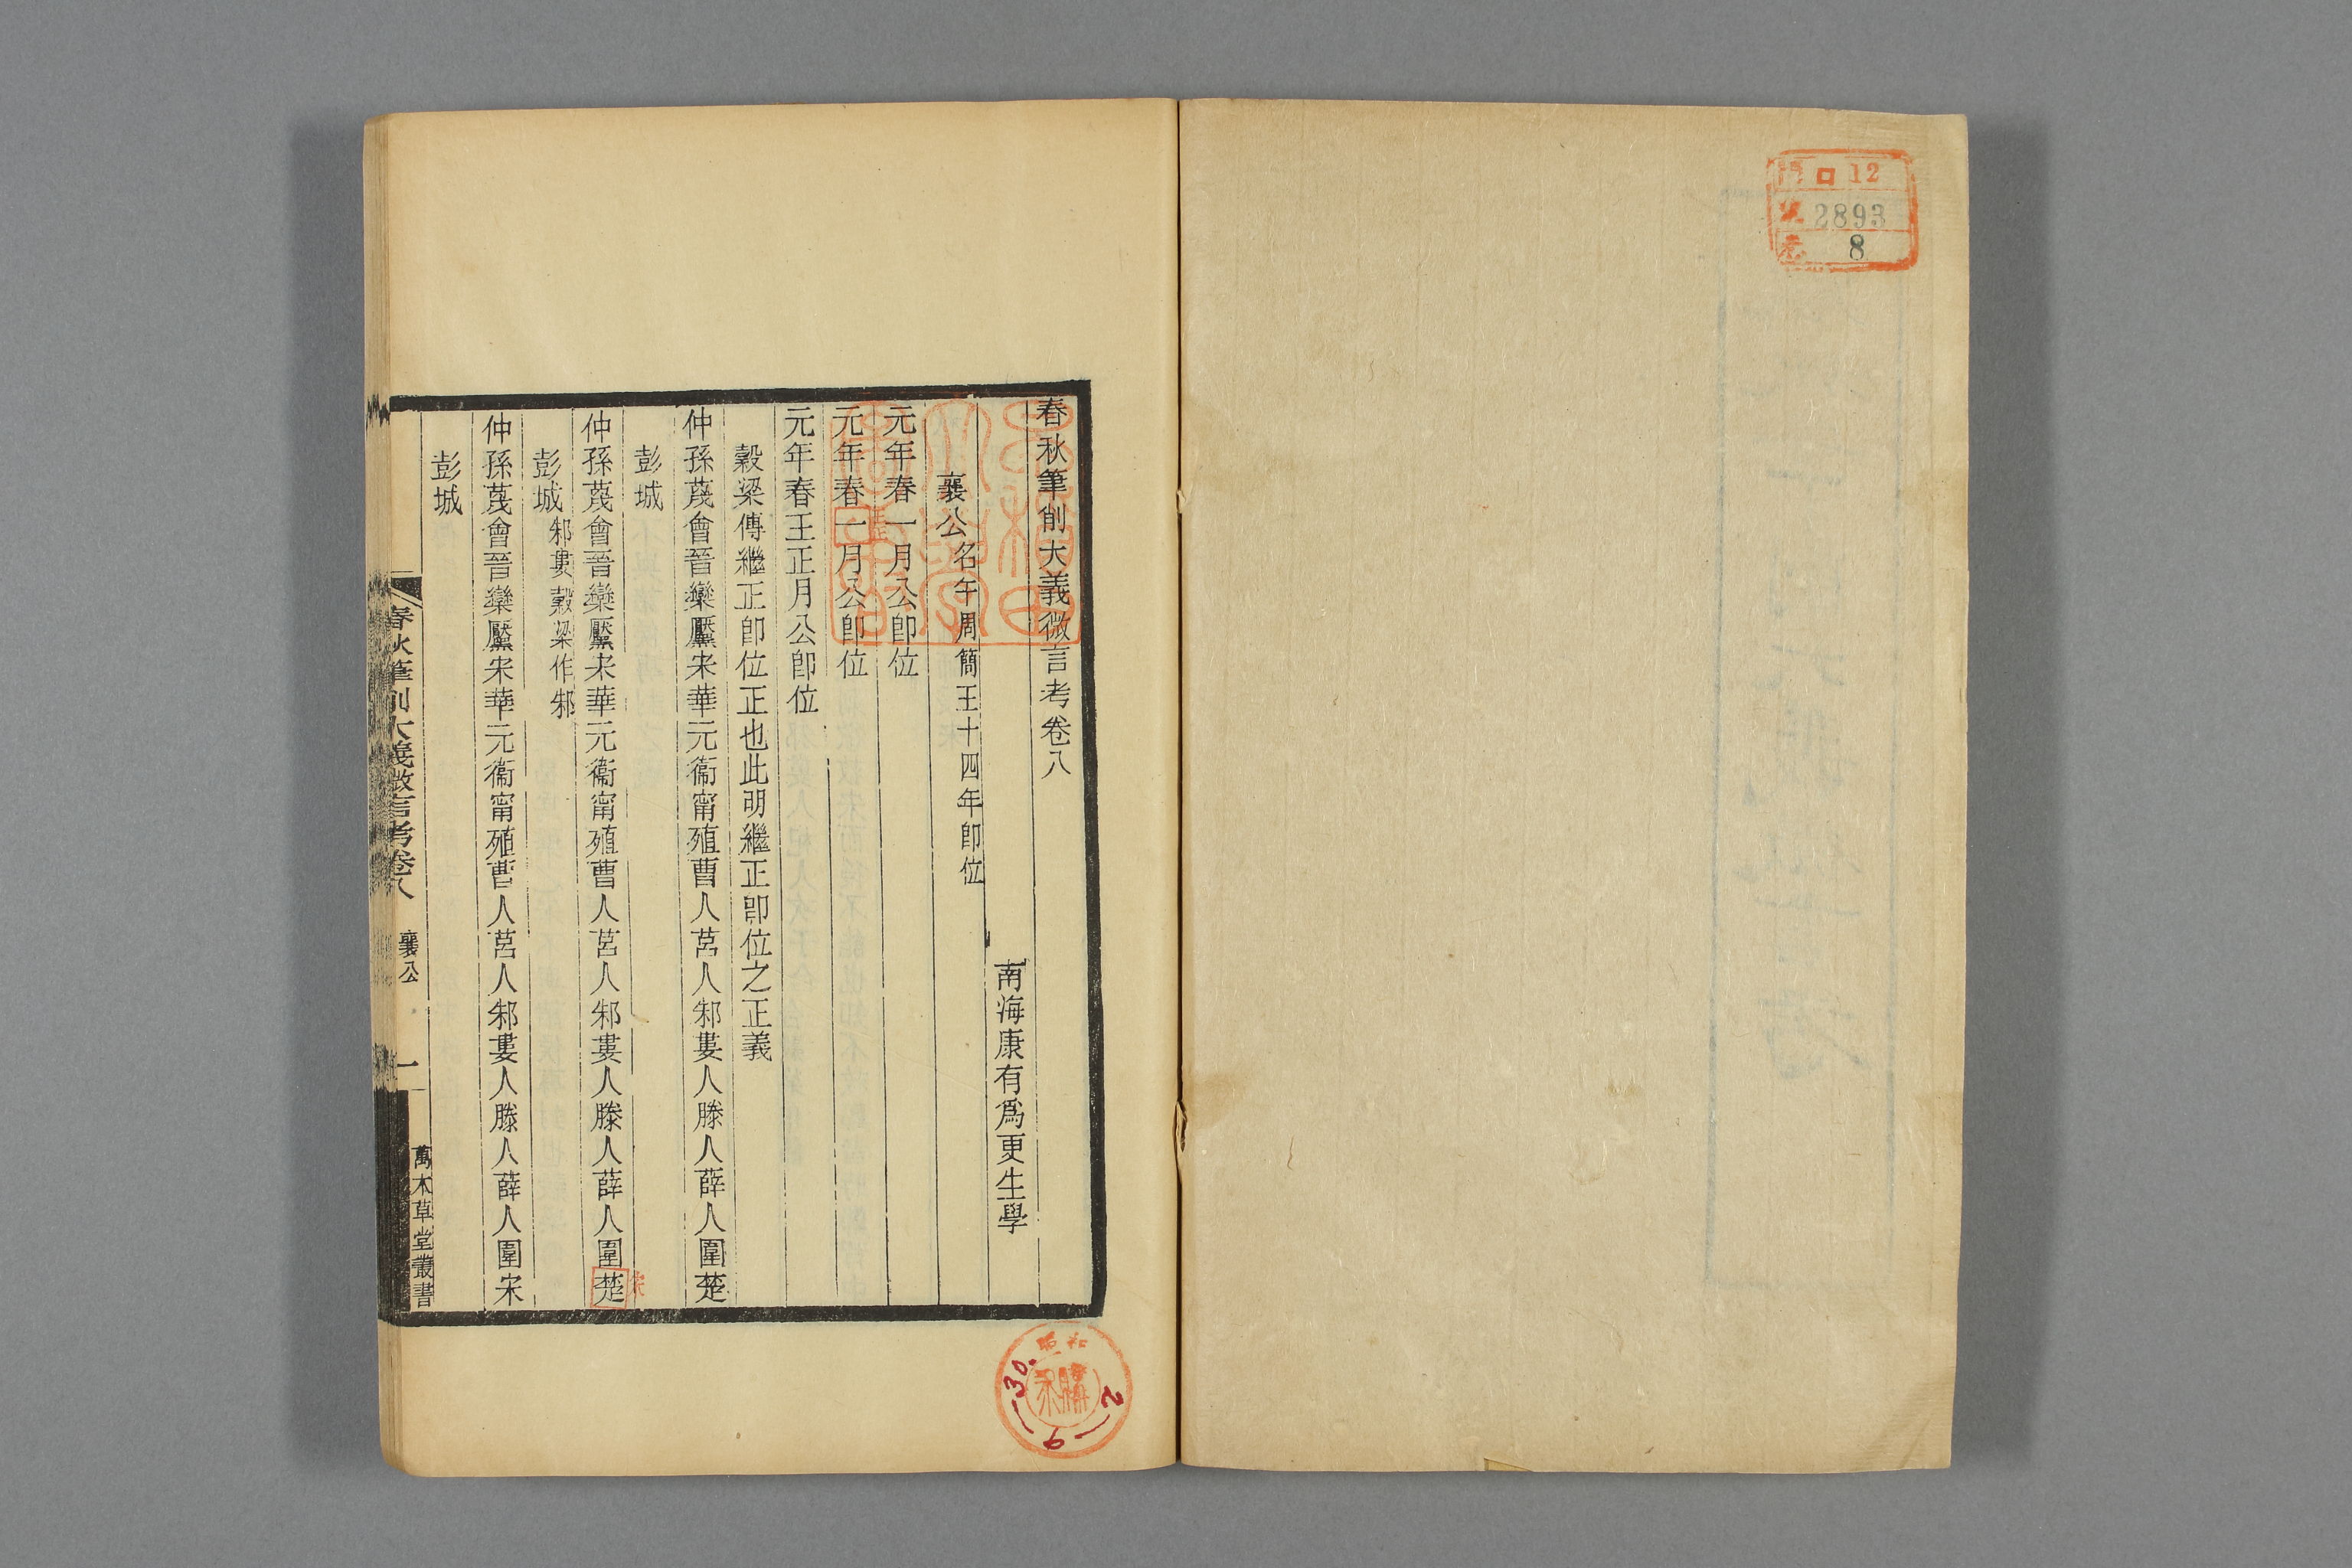 門 ロ 12
號 2893
卷 8
春秋筆削大義微言考卷八
南海康有爲更生學
襄公名午周簡王十四年卽位
元年春一月公卽位
元年春一月公卽位
王正
元年春王正月公卽位
穀梁傳繼正卽位正也此明繼正卽位之正義
仲孫蔑會晉欒黶宋華元衞甯殖曹人莒人邾婁人滕人薛人圍楚
彭城
仲孫蔑會晉欒黶宋華元衞甯殖曹人莒人邾婁人滕人薛人圍楚
宋
彭城邾婁穀梁作邾
仲孫蔑會晉欒黶宋華元衞甯殖曹人莒人邾婁人滕人薛人圍宋
彭城
春秋筆削大義微言考卷八 襄公 一
萬木草堂叢書
早稲田
大學
圖書
昭和
購求
30.
6
2